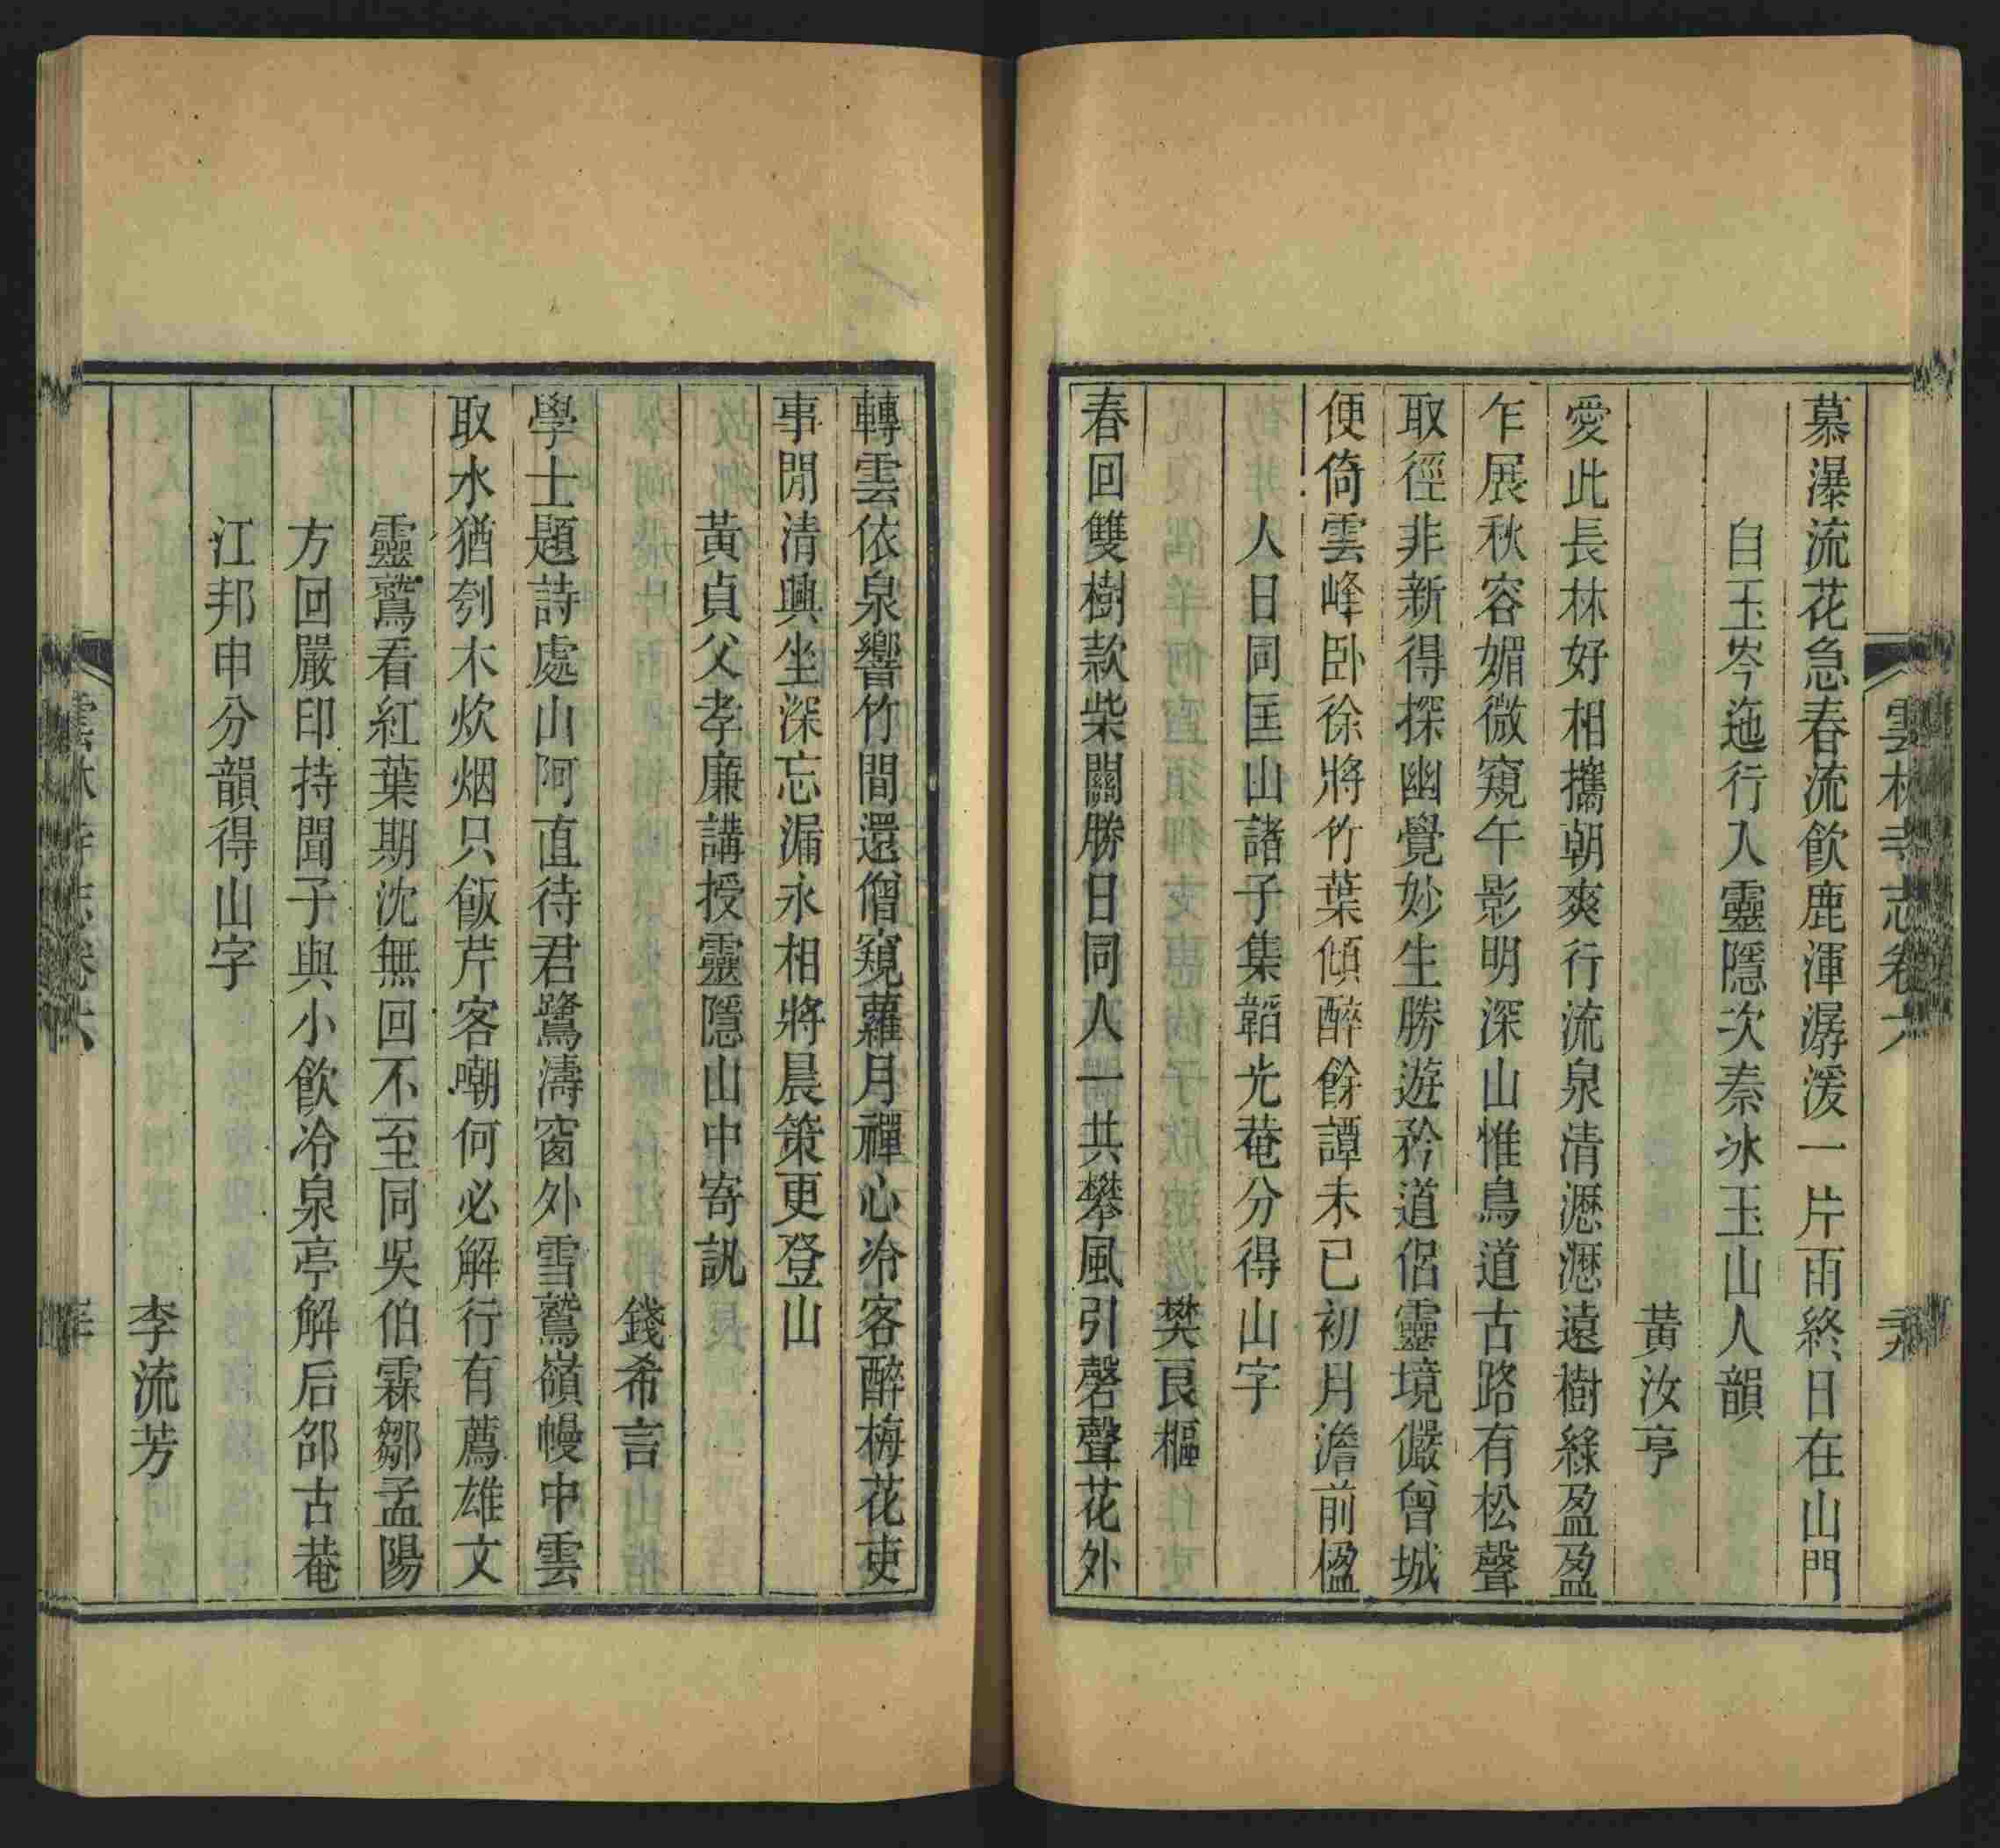 雲林寺志卷六
慕瀑流花急春流飲鹿渾潺湲一片雨終日在山門
自玉岑迤行入靈隱次秦冰玉山人韻
黃汝亨
愛此長林好相攜朝爽行流泉清瀝瀝遠樹綠盈盈
乍展秋容媚微窺午影明深山惟鳥道古路有松聲
取徑非新得探幽覺妙生勝遊矜道侶靈境儼曾城
便倚雲峰卧徐將竹葉傾醉餘譚未已初月澹前楹
人日同匡山諸子集韜光菴分得山字
樊良樞
春回雙樹款柴關勝日同人一共攀風引磬聲花外
轉雲依泉響竹間還僧窺蘿月禪心冷客醉梅花吏
事閒清興坐深忘漏永相將晨策更登山
黃貞父孝廉講授靈隱山中寄訊
錢希言
學士題詩處山阿直待君鷺濤窗外雪鷲嶺幔中雲
取水猶刳木炊烟只飯芹客嘲何必解行有薦雄文
靈鷲看紅葉期沈無回不至同吳伯霖鄒孟陽
方回嚴印持聞子與小飲冷泉亭解后邵古菴
江邦申分韻得山字
李流芳
雲林寺志卷六